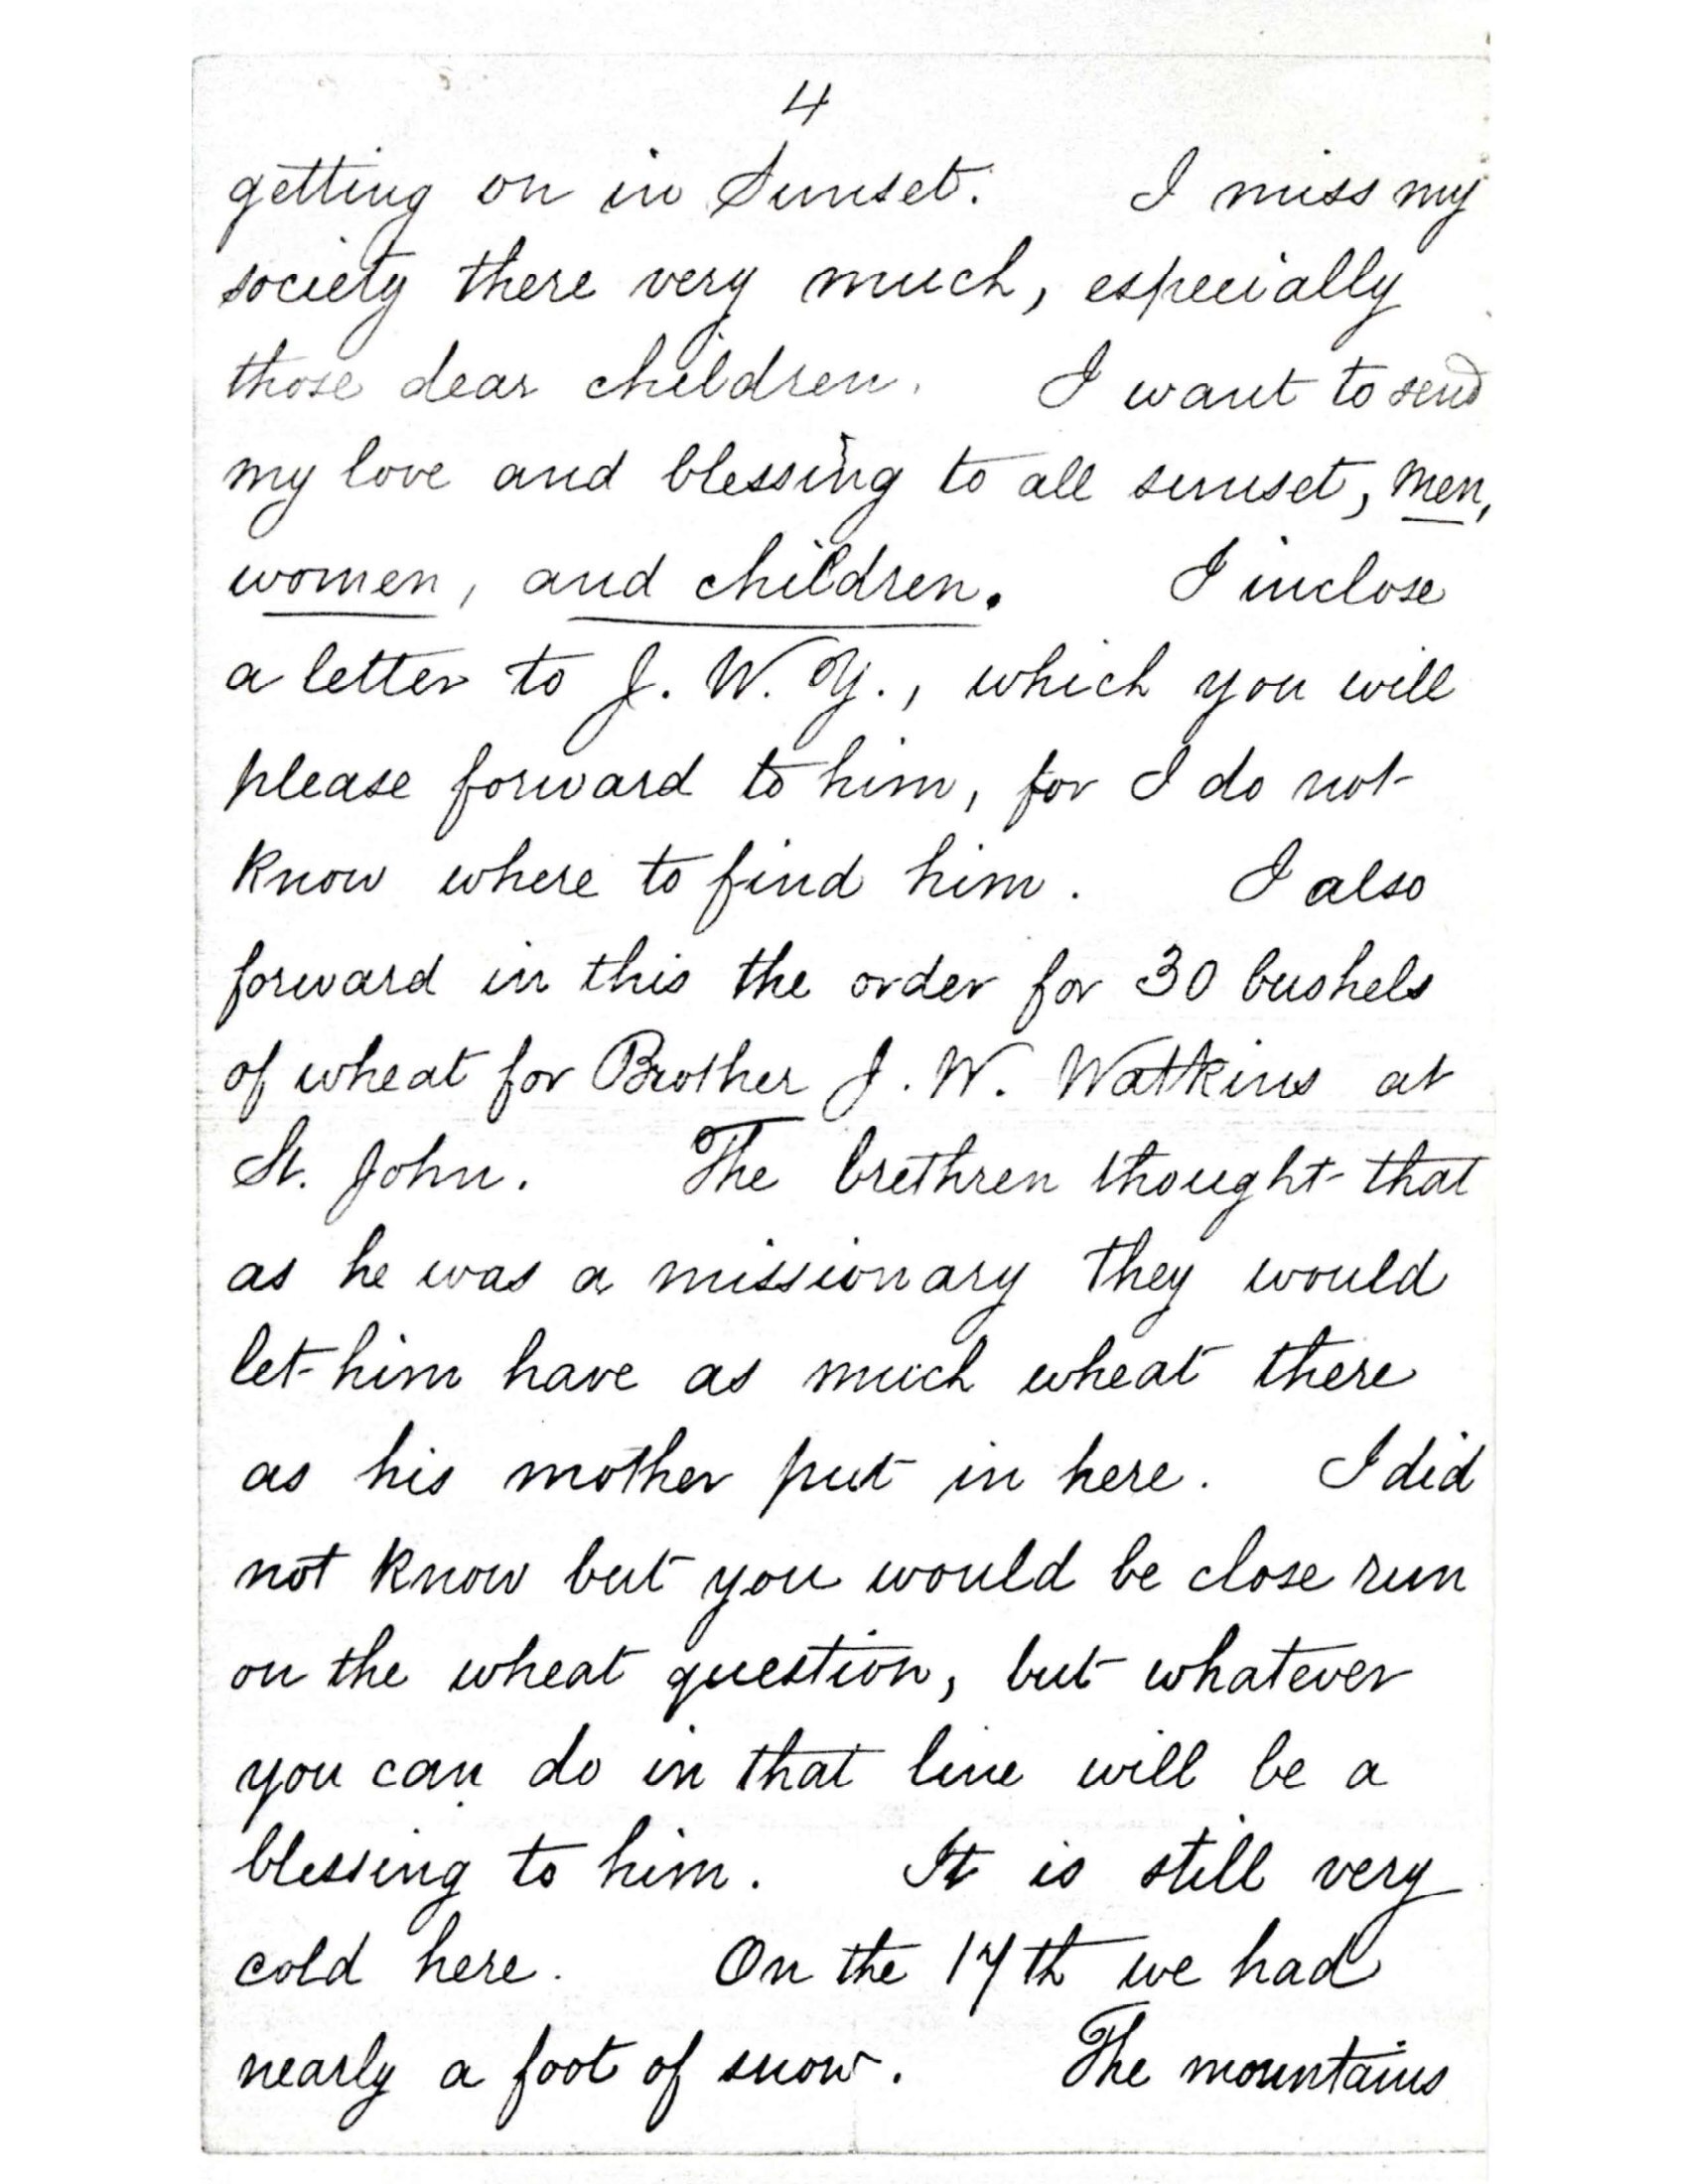 4
getting on in Sunset. I miss my
society there very much, especially
those dear children. I want to send
my love and blessing to all sunset, men,
women, and children. I inclose
a letter to J. W. Y., which you will
please forward to him, for I do not
know where to find him. I also
forward in this the order for 30 bushels
of wheat for Brother J. W. Watkins at
St. John. The brethren thought that
as he was a missionary they would
let him have as much wheat there
as his mother put in here. I did
not know but you would be close run
on the wheat question, but whatever
you can do in that line will be a
blessing to him. It is still very
cold here. On the 17th we had
nearly a foot of snow. The mountains